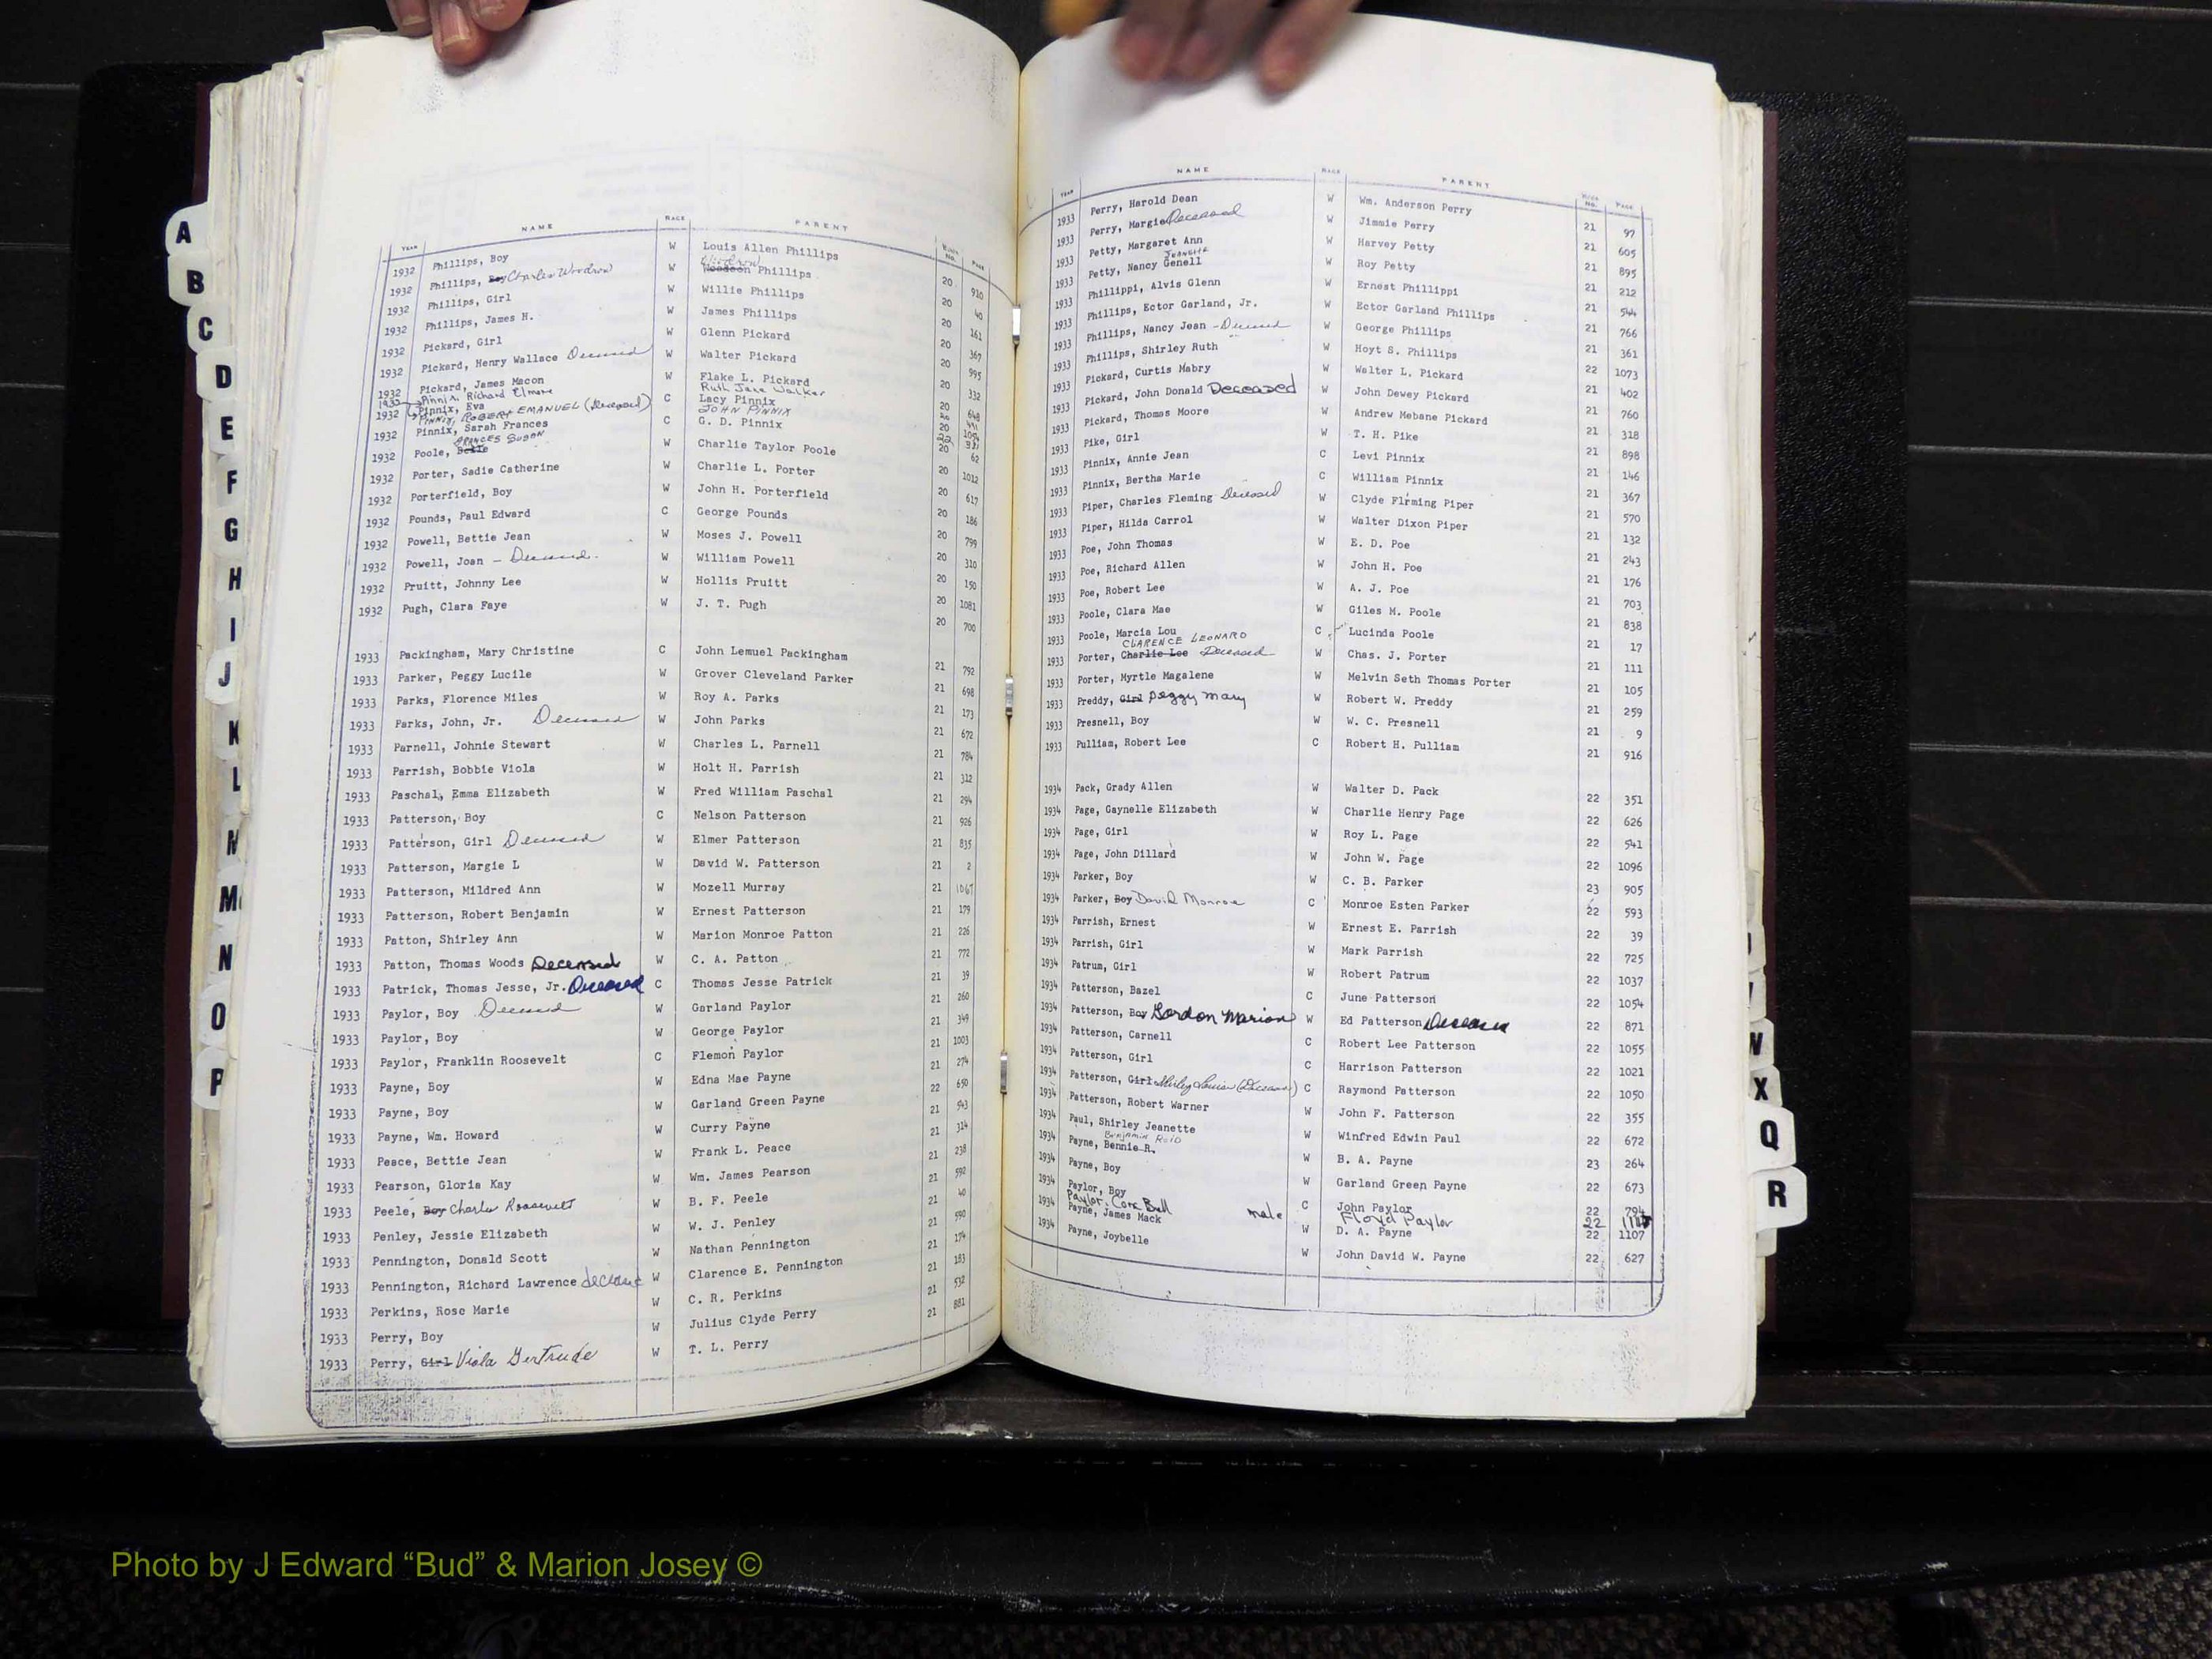 A
B
C
D
E
F
G
H
I
J
K
L
M
N
O
P
YEAR NAME RACE PARENT BOOK NO. PAGE
1932 Phillips, Boy W Louis Allen Phillips 20 910
1932 Phillips, Boy Charles Woodrow W Woodrow Phillips 20 40
1932 Phillips, Girl W Willie Phillips 20 161
1932 Phillips, James H. W James Phillips 20 367
1932 Pickard, Girl W Glenn Pickard 20 995
1932 Pickard, Henry Wallace Deceased W Walter Pickard 20 332
1932 Pickard, James Macon W Flake L. Pickard 20 648
1933 Pinnix, Richard Elmore Ruth Jane Walker
1932 Pinnix, Eva C Lacy Pinnix
PINNIX, ROBERT EMANUEL (Deceased) JOHN PINNIX
1932 Pinnix, Sarah Frances C G. D. Pinnix
FRANCES SUSAN
1932 Poole, W Charlie Taylor Poole 20 62
1932 Porter, Sadie Catherine W Charlie L. Porter 20 1012
1932 Porterfield, Boy W John H. Porterfield 20 617
1932 Pounds, Paul Edward C George Pounds 20 186
1932 Powell, Bettie Jean W Moses J. Powell 20 799
1932 Powell, Joan - Deceased W William Powell 20 310
1932 Pruitt, Johnny Lee W Hollis Pruitt 20 150
1932 Pugh, Clara Faye W J. T. Pugh 20 1081
20 700
1933 Packingham, Mary Christine C John Lemuel Packingham 21 792
1933 Parker, Peggy Lucile W Grover Cleveland Parker 21 698
1933 Parks, Florence Miles W Roy A. Parks 21 173
1933 Parks, John, Jr. Deceased W John Parks 21 672
1933 Parnell, Johnie Stewart W Charles L. Parnell 21 784
1933 Parrish, Bobbie Viola W Holt H. Parrish 21 312
1933 Paschal, Emma Elizabeth W Fred William Paschal 21 294
1933 Patterson, Boy C Nelson Patterson 21 926
1933 Patterson, Girl Deceased W Elmer Patterson 21 835
1933 Patterson, Margie L W David W. Patterson 21 2
1933 Patterson, Mildred Ann W Mozell Murray 21 1067
1933 Patterson, Robert Benjamin W Ernest Patterson 21 179
1933 Patton, Shirley Ann W Marion Monroe Patton 21 226
1933 Patton, Thomas Woods Deceased W C. A. Patton 21 772
1933 Patrick, Thomas Jesse, Jr. Deceased C Thomas Jesse Patrick 21 39
1933 Paylor, Boy Deceased W Garland Paylor 21 260
1933 Paylor, Boy W George Paylor 21 349
1933 Paylor, Franklin Roosevelt C Flemon Paylor 21 1003
1933 Payne, Boy W Edna Mae Payne 21 274
1933 Payne, Boy W Garland Green Payne 22 650
1933 Payne, Wm. Howard W Curry Payne 21 543
1933 Peace, Bettie Jean W Frank L. Peace 21 314
1933 Pearson, Gloria Kay W Wm. James Pearson 21 238
1933 Peele, Boy Charles Roosevelt W B. F. Peele 21 592
1933 Penley, Jessie Elizabeth W W. J. Penley 21 40
1933 Pennington, Donald Scott W Nathan Pennington 21 590
1933 Pennington, Richard Lawrence deceased W Clarence E. Pennington 21 174
1933 Perkins, Rose Marie W C. R. Perkins 21 183
1933 Perry, Boy W Julius Clyde Perry 21 532
1933 Perry, Girl Viola Gertrude W T. L. Perry 21 881
YEAR NAME RACE PARENT BOOK NO. PAGE
1933 Perry, Harold Dean W Wm. Anderson Perry 21 97
1933 Perry, Margie Deceased W Jimmie Perry 21 605
1933 Petty, Margaret Ann W Harvey Petty 21 895
Jeanette
1933 Petty, Nancy Genell W Roy Petty 21 212
1933 Phillippi, Alvis Glenn W Ernest Phillippi 21 544
1933 Phillips, Ector Garland, Jr. W Ector Garland Phillips 21 766
1933 Phillips, Nancy Jean - Deceased W George Phillips 21 361
1933 Phillips, Shirley Ruth W Hoyt S. Phillips 22 1073
1933 Pickard, Curtis Mabry W Walter L. Pickard 21 402
1933 Pickard, John Donald Deceased W John Dewey Pickard 21 760
1933 Pickard, Thomas Moore W Andrew Mebane Pickard 21 318
1933 Pike, Girl W T. H. Pike 21 898
1933 Pinnix, Annie Jean C Levi Pinnix 21 146
1933 Pinnix, Bertha Marie C William Pinnix 21 367
1933 Piper, Charles Fleming Deceased W Clyde Flrming Piper 21 570
1933 Piper, Hilda Carrol W Walter Dixon Piper 21 132
1933 Poe, John Thomas W E. D. Poe 21 243
1933 Poe, Richard Allen W John H. Poe 21 176
1933 Poe, Robert Lee W A. J. Poe 21 703
1933 Poole, Clara Mae W Giles M. Poole 21 838
1933 Poole, Marcia Lou C Lucinda Poole 21 17
CLARENCE LEONARD
1933 Porter, Charlie Lee Deceased W Chas. J. Porter 21 111
1933 Porter, Myrtle Magalene W Melvin Seth Thomas Porter 21 105
1933 Preddy, Girl Peggy Mary W Robert W. Preddy 21 259
1933 Presnell, Boy W W. C. Presnell 21 9
1933 Pulliam, Robert Lee C Robert H. Pulliam 21 916
1934 Pack, Grady Allen W Walter D. Pack 22 351
1934 Page, Gaynelle Elizabeth W Charlie Henry Page 22 626
1934 Page, Girl W Roy L. Page 22 541
1934 Page, John Dillard W John W. Page 22 1096
1934 Parker, Boy W C. B. Parker 23 905
1934 Parker, Boy David Monroe C Monroe Esten Parker 22 593
1934 Parrish, Ernest W Ernest E. Parrish 22 39
1934 Parrish, Girl W Mark Parrish 22 725
1934 Patrum, Girl W Robert Patrum 22 1037
1934 Patterson, Bazel C June Patterson 22 1054
1934 Patterson, Boy Gordon Marion W Ed Patterson Deceased 22 871
1934 Patterson, Carnell C Robert Lee Patterson 22 1055
1934 Patterson, Girl C Harrison Patterson 22 1021
1934 Patterson, Girl Shirley Louise (Deceased) C Raymond Patterson 22 1050
1934 Patterson, Robert Warner W John F. Patterson 22 355
1934 Paul, Shirley Jeanette W Winfred Edwin Paul 22 672
Benjamin Reid
1934 Payne, Bennie R. W B. A. Payne 23 264
1934 Payne, Boy W Garland Green Payne 22 673
1934 Paylor, Boy C John Paylor 22 794
Paylor, Cora Bell male Floyd Paylor 22
1934 Payne, James Mack W D. A. Payne 22 1107
1934 Payne, Joybelle W John David W. Payne 22 627
W
X
Q
R
Photo by J Edward “Bud” & Marion Josey ©